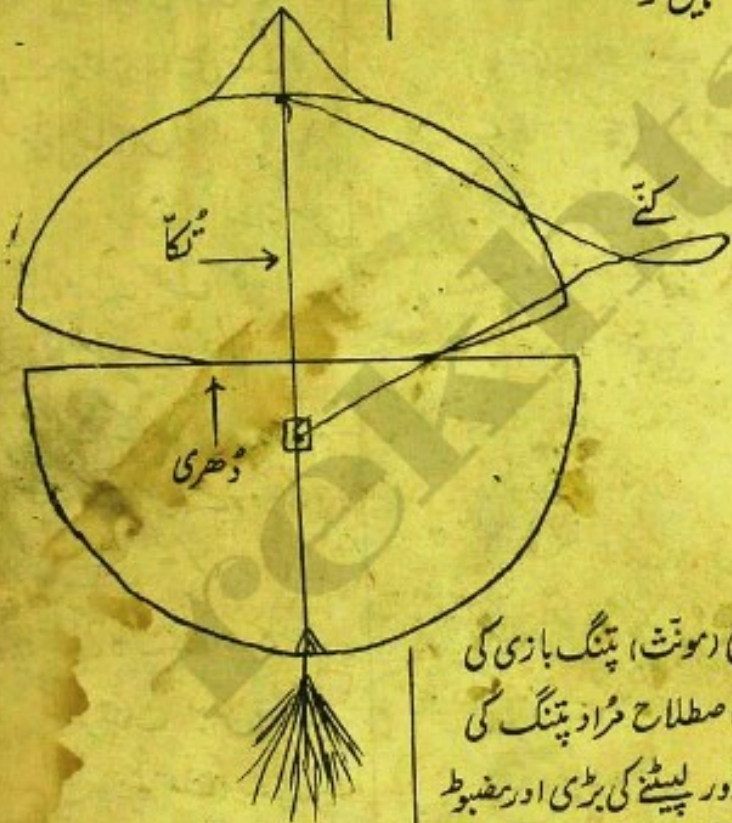 کنّے
تُکّا
دُھری
(مونّث) پتنگ بازی کی
صطلاح مُراد پتنگ کی
ور لپیٹنے کی بڑی اور مضبوط
rekht